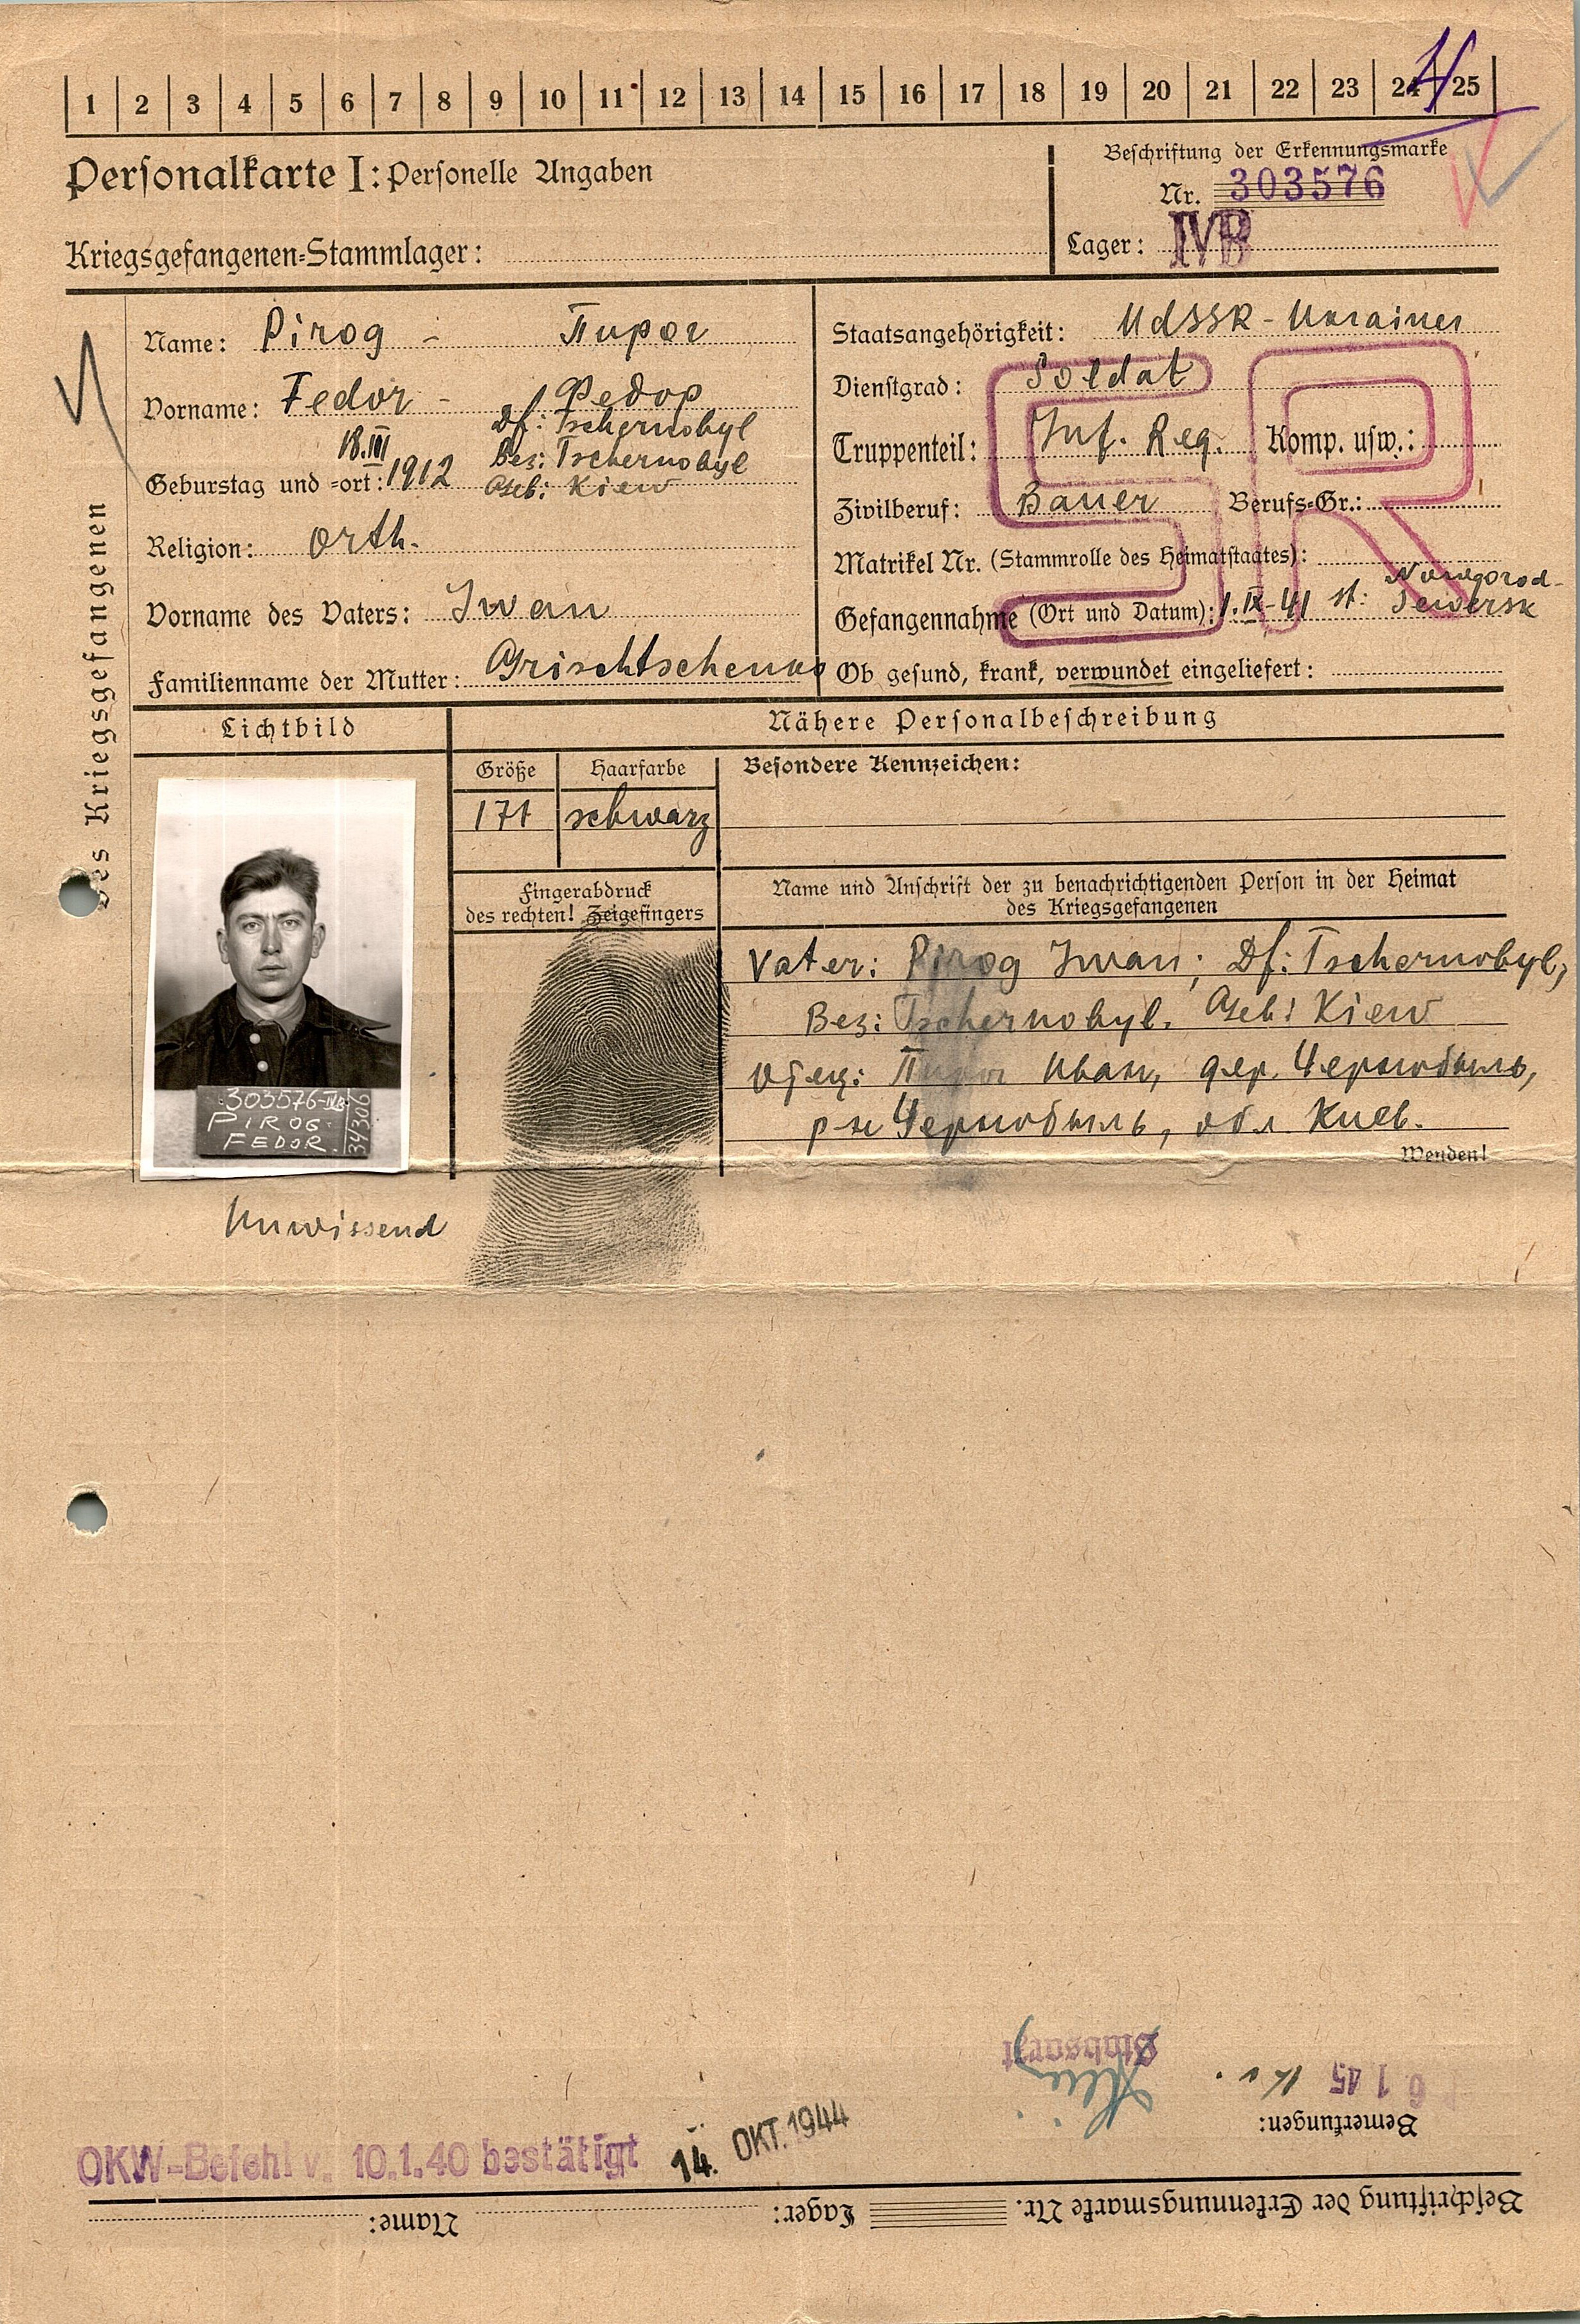 1 2 3 4 5 6 7 8 9 10 11 12 13 14 15 16 17 18 19 20 21 22 23 24 25
Personalkarte I: Personelle Angaben
Beschriftung der Erkennungsmarke
Nr. 303576
Kriegsgefangenen-Stammlager:
Lager: IVB
des Kriegsgefangenen
Name: Pirog - Пирог
Vorname: Fedor - Федор
Df: Tschernobyl
18.III Bez: Tschernobyl
Geburstag und -ort: 1912 Geb: Kiew
Religion: Orth.
Vorname des Vaters: Iwan
Familienname der Mutter: Grischtschenko
Staatsangehörigkeit: UdSSR - Ukrainer
Dienstgrad: Soldat
Truppenteil: Inf. Reg. Komp. usw.:
Zivilberuf: Bauer Berufs-Gr.:
Matrikel Nr. (Stammrolle des Heimatstaates):
Gefangennahme (Ort und Datum): 1.IX-41 st: Nowgorod-Sewersk
Ob gesund, krank, verwundet eingeliefert:
SR
Lichtbild
Nähere Personalbeschreibung
Größe Haarfarbe Besondere Kennzeichen:
171 schwarz
Fingerabdruck
des rechten! Zeigefingers
Name und Anschrift der zu benachrichtigenden Person in der Heimat
des Kriegsgefangenen
Vater: Pirog Iwan; Df: Tschernobyl,
Bez: Tschernobyl. Geb: Kiew
Отец: Пирог Иван, дер. Чернобыль,
р-н Чернобыль, обл. Киев.
Wenden!
303576-IVB
PIROG
FEDOR.
34306
Unwissend
OKW-Befehl v. 10.1.40 bestätigt 14. OKT. 1944
Beschriftung der Erkennungsmarke Nr. Lager: Name:
Bemerkungen:
6 1 45
Stabsarzt